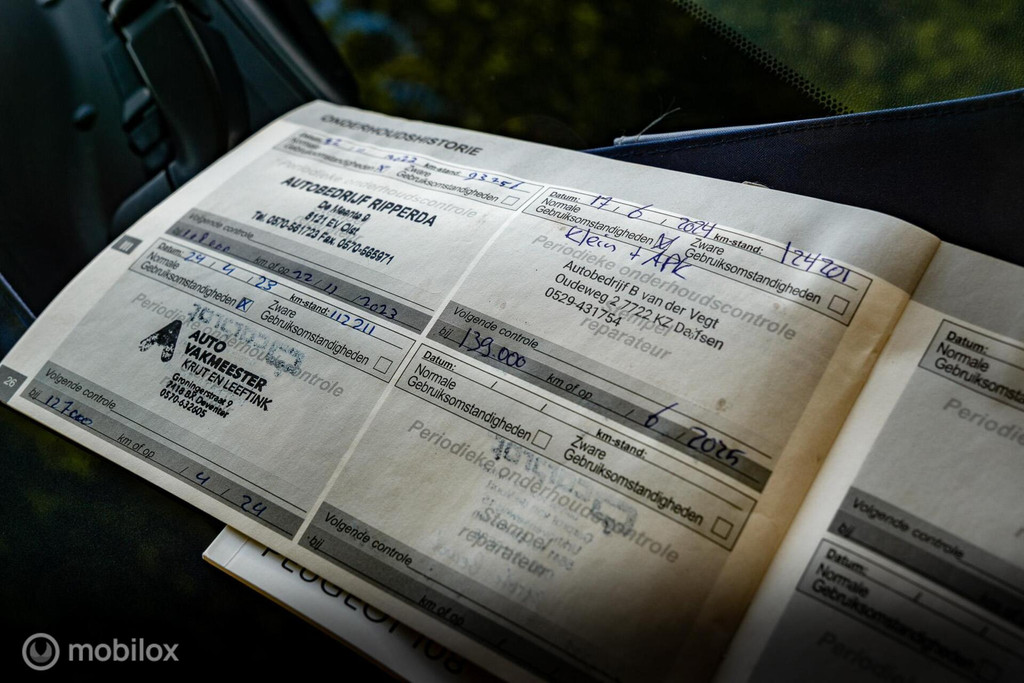 ONDERHOUDSHISTORIE
Datum: 2022 km-stand: 93251
Normale Gebruiksomstandigheden X Zware Gebruiksomstandigheden
Periodieke onderhoudscontrole
AUTOBEDRIJF RIPPERDA
De Meente 9
8121 EV Olst
Tel. 0570-561723 Fax 0570-565971
Volgende controle
bij km of op 22 / 11 / 2023
Datum: 24 / 4 / 23 km-stand: 112211
Normale Gebruiksomstandigheden X Zware Gebruiksomstandigheden
Periodieke onderhoudscontrole
AUTO
VAKMEESTER
KRUT EN LEEFTINK
Groningerstraat 9
0570-632605
Volgende controle
bij 127000 km of op / 4 / 24
26
Datum: 17 / 6 / 2024 km-stand: 124201
Normale Gebruiksomstandigheden Zware Gebruiksomstandigheden
Klein + APK
Periodieke onderhoudscontrole
Stempel
reparateur
Autobedrijf B van der Vegt
Oudeweg 2 7722 KZ Dalfsen
0529-431754
Volgende controle
bij 139.000 km of op / 6 / 2025
Datum: / / km-stand:
Normale Gebruiksomstandigheden Zware Gebruiksomstandigheden
Periodieke onderhoudscontrole
Stempel
reparateur
Volgende controle
bij km of op / /
Datum:
Normale
Gebruiksomstandig
Periodie
Volgende controle
bij
Datum:
Normale
Gebruiksomstandig
PEUGEOT 108
mobilox